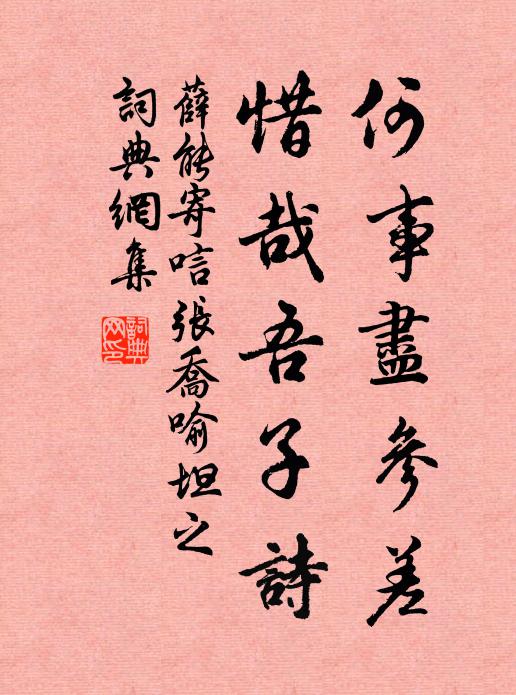 何事盡參差
惜哉吾子詩
薛能寄唁張喬喻坦之
詞典網集
詞典
网印